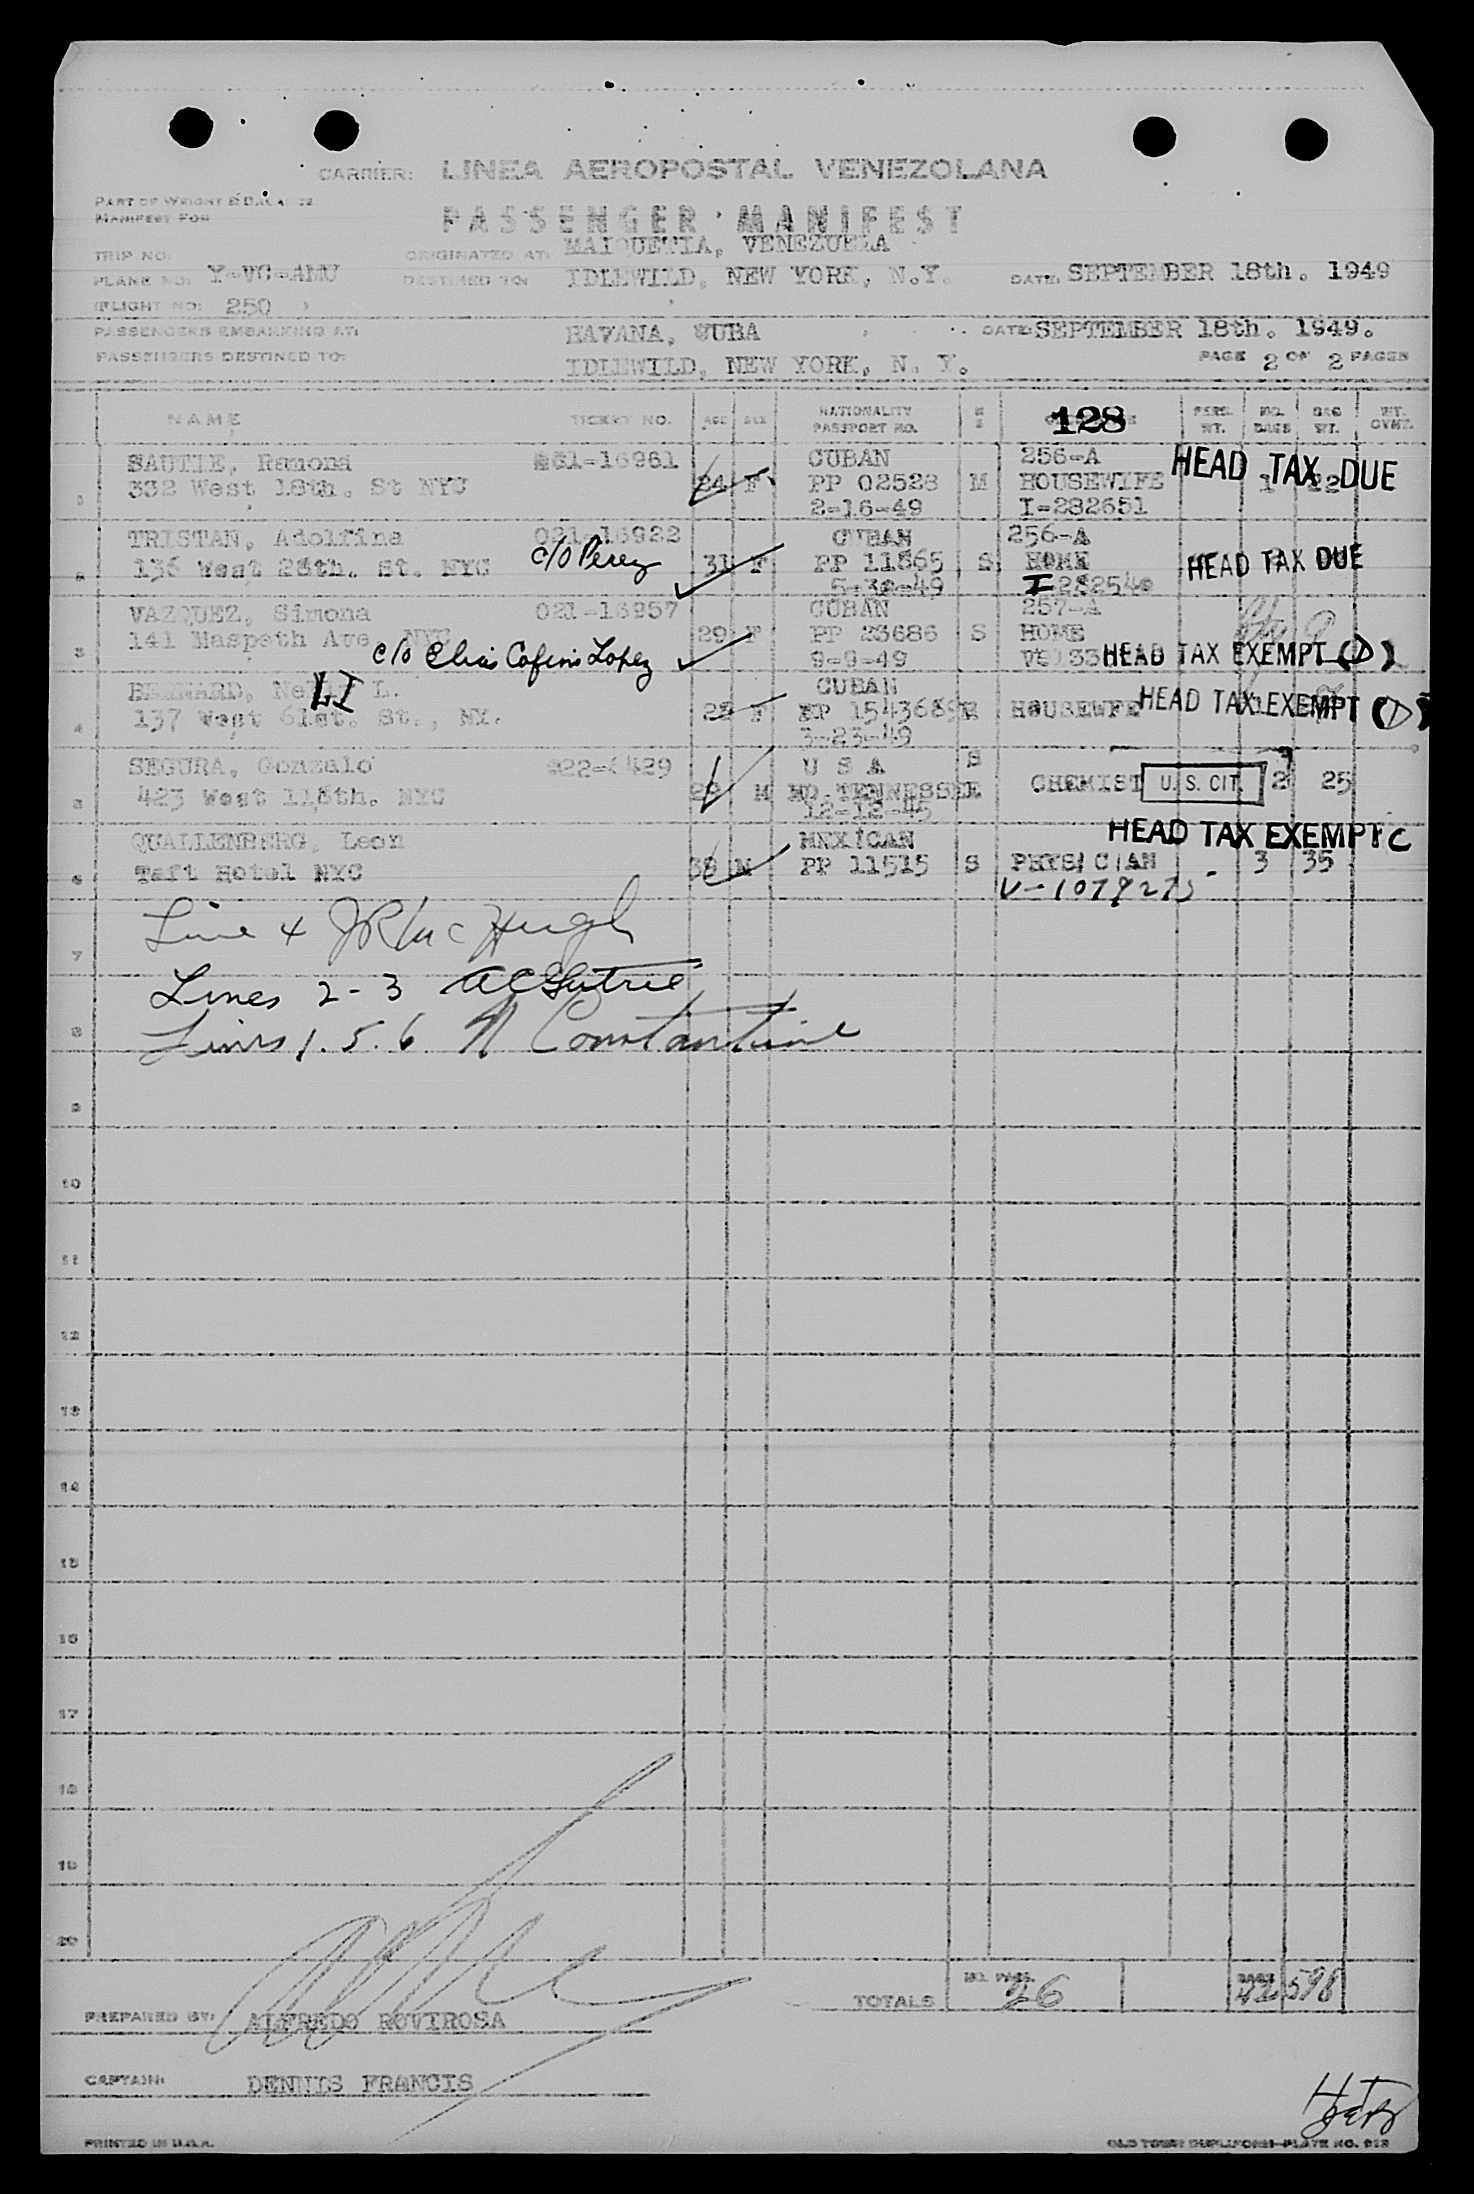 CARRIER: LINEA AEROPOSTAL VENEZOLANA
PART OF WEIGHT & BALANCE
MANIFEST FOR
PASSENGER MANIFEST
TRIP NO: ORIGINATED AT: MAIQUETIA, VENEZUELA
PLANE NO: Y-VC-AMU DESTINED TO: IDLEWILD, NEW YORK, N.Y. DATE: SEPTEMBER 18th. 1949
(FLIGHT NO: 250 )
PASSENGERS EMBARKING AT: HAVANA, CUBA DATE: SEPTEMBER 18th. 1949.
PASSENGERS DESTINED TO: IDLEWILD, NEW YORK, N. Y. PAGE 2 OF 2 PAGES
NAME TICKET NO. AGE SEX NATIONALITY PASSPORT NO. M S 128 PERS. WT. NO. BAGS BAG WT. WT. OVWT.
SAUTIE, Ramona 16961 CUBAN 256-A HEAD TAX DUE
1 332 West 18th. St NYC 24 F PP 02528 M HOUSEWIFE 1 22
2-16-49 I-282651
TRISTAN, Adolfina 021-16922 CUBAN 256-A
2 136 West 28th. St. NYC c/o Perez 31 F PP 11865 S HOME HEAD TAX DUE
5-30-49 I-282540
VAZQUEZ, Simona 021-16957 CUBAN 257-A
3 141 Maspeth Ave, NYC 29 F PP 23686 S HOME
c/o Elias Lopez 9-9-49 HEAD TAX EXEMPT (D)
L. LI CUBAN HEAD TAX EXEMPT (D)
4 137 West 61st. St., NY. 28 F PP HOUSEWFE
3-23-49
SEGURA, Gonzalo U S A S
5 423 West 118th. NYC 29 M NO. TENNESSEE CHEMIST U. S. CIT. 2 25
12-12-45
QUALLENBERG, Leon MEXICAN HEAD TAX EXEMPT C
6 Taft Hotel NYC 38 M PP 11515 S PHYSICIAN 3 35
V-1079273
Line 4 JR McHugh
7
Lines 2-3 AC Gutrie
8 Lines 1. 5. 6 N Constantine
9
10
11
12
13
14
15
16
17
18
19
20
TOTALS NO. PASS. 26 BAGS 42 598
PREPARED BY: ALFREDO ROVIROSA
CAPTAIN: DENNIS FRANCIS
PRINTED IN U.S.A. OLD TOWN DUPLIFORM-PLATE NO. 213